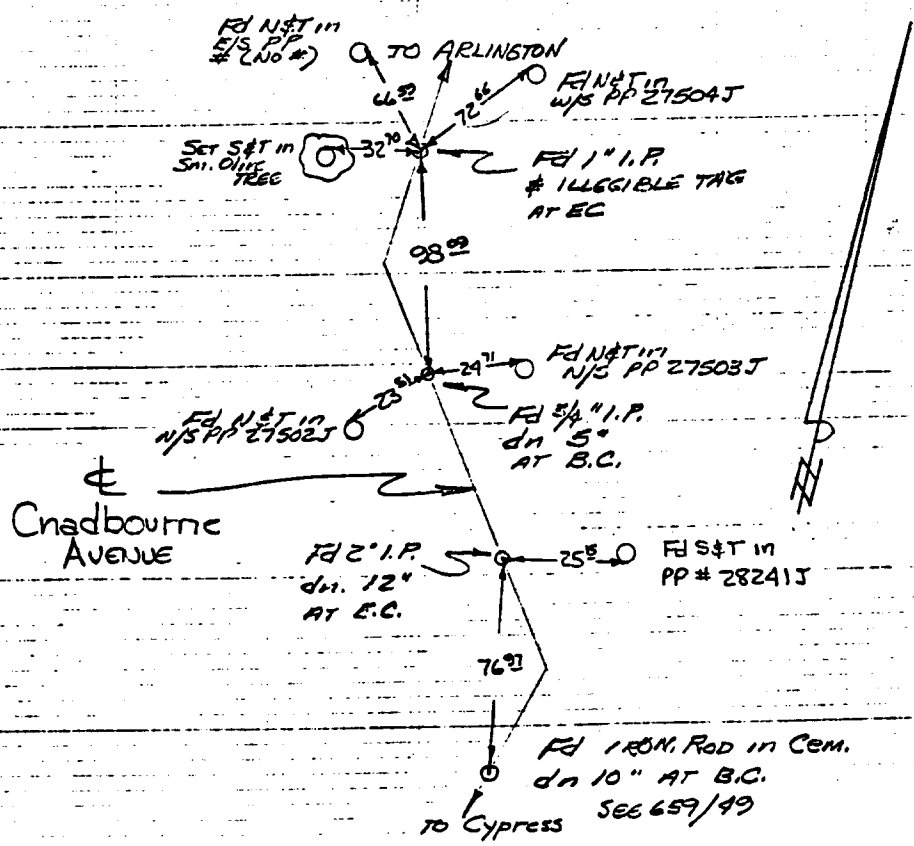 Fd N&T in
E/S PP
# (NO #)
TO ARLINGTON
Fd N&T in
W/S PP 27504J
66 59
72 66
Set S&T in
Sm. Olive
TREE
32 70
Fd 1" I.P.
& ILLEGIBLE TAG
AT EC
98 09
Fd N&T in
N/S PP 27503J
24 71
23 51
Fd N&T in
N/S PP 27502J
Fd 3/4" I.P.
dn 5"
AT B.C.
℄
Chadbourne
AVENUE
Fd 2" I.P.
dn. 12"
AT E.C.
25 15
Fd S&T in
PP # 28241J
76 97
Fd IRON. ROD in Cem.
dn 10" AT B.C.
SEE 659/49
TO Cypress